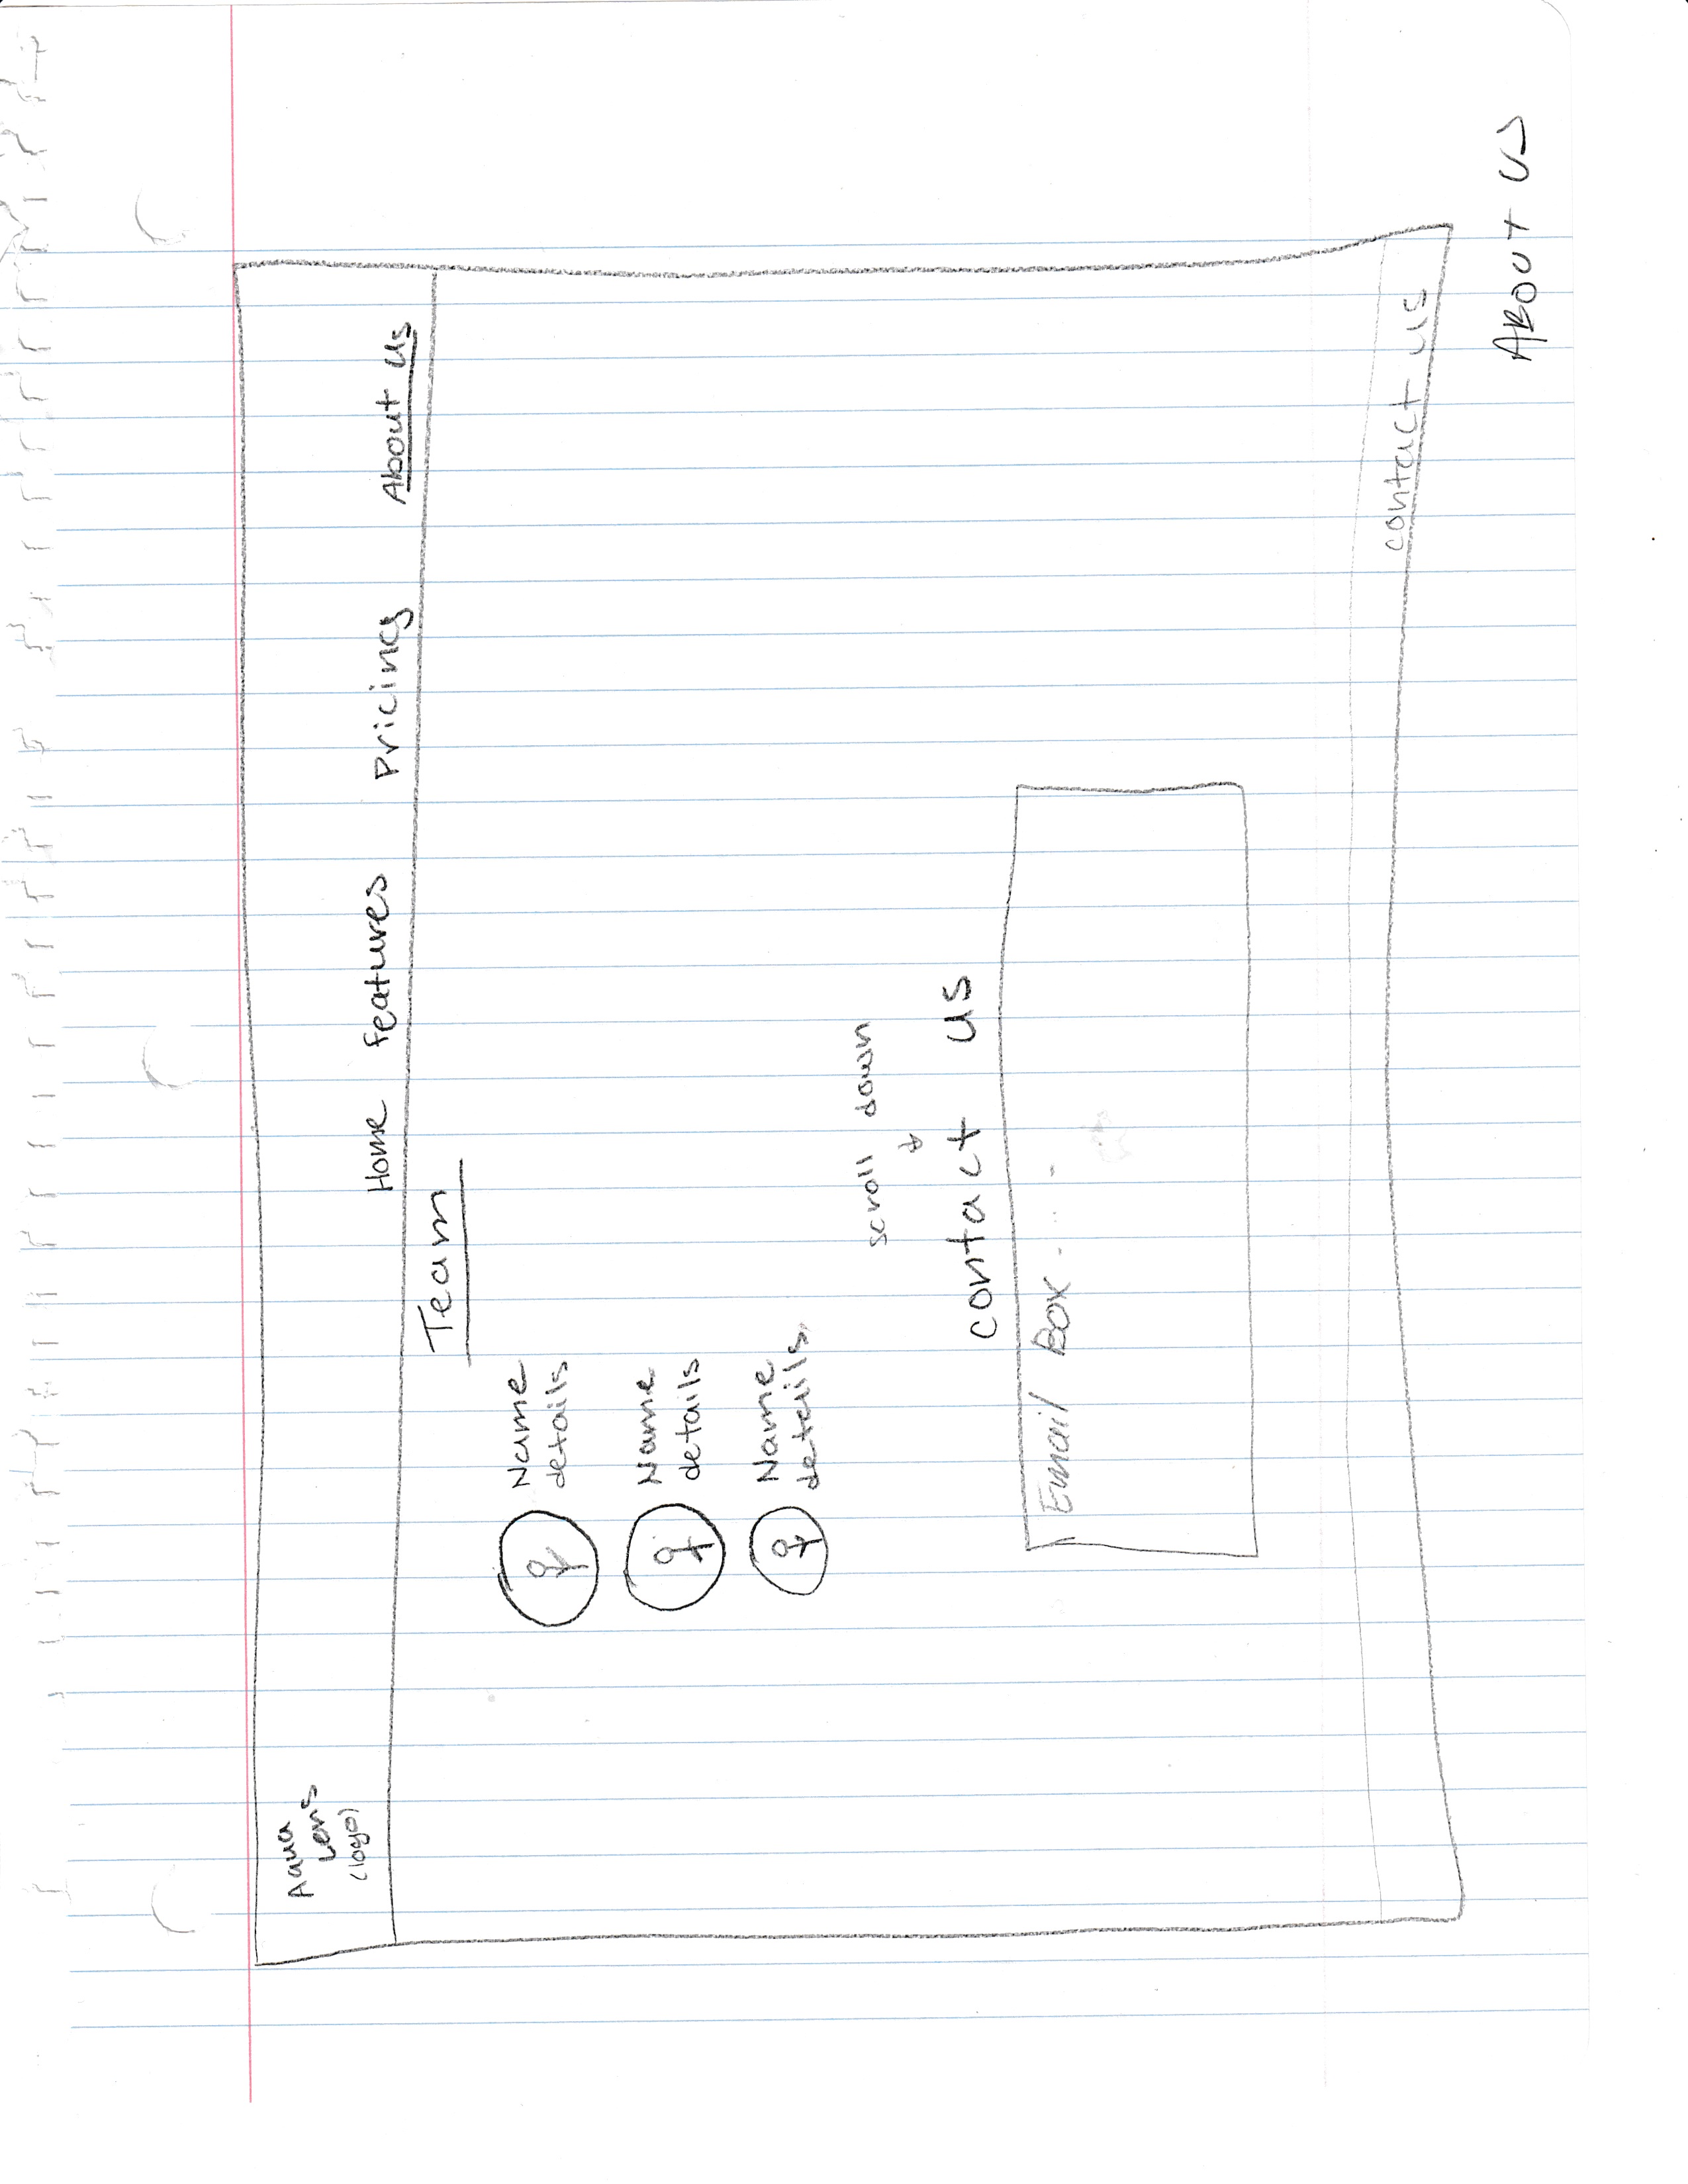 Aqua
Lens
(logo)
Home Features Pricing About Us
Team
Name
details
Name
details
Name
details
scroll down
contact us
Email Box
contact us
ABOUT US